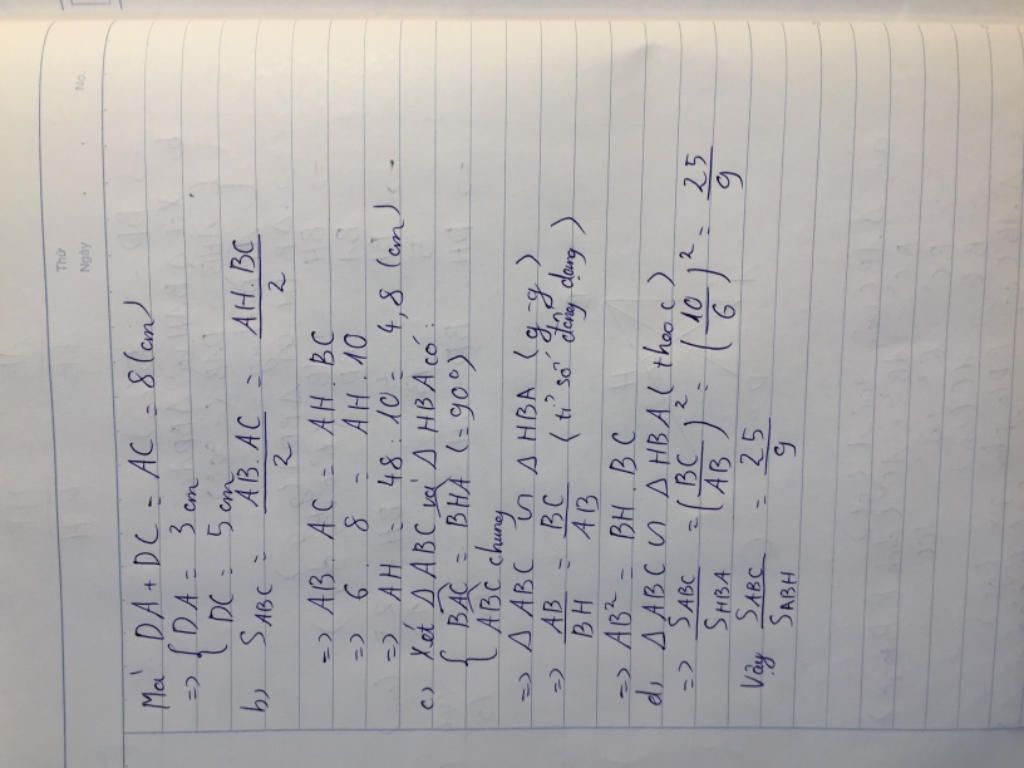 Thứ
Ngày
No.
Mà DA + DC = AC = 8 (cm)
=> { DA = 3 cm
DC = 5 cm
b, S ABC = AB.AC / 2 = AH.BC / 2
=> AB . AC = AH . BC
=> 6 . 8 = AH . 10
=> AH = 48 : 10 = 4,8 (cm)
c, Xét Δ ABC và Δ HBA có:
{ BAC = BHA (= 90°)
ABC chung
=> Δ ABC ∽ Δ HBA (g-g)
=> AB / BH = BC / AB (tỉ số đồng dạng)
=> AB² = BH . BC
d, Δ ABC ∽ Δ HBA (theo c)
=> S ABC / S HBA = (BC / AB)² = (10 / 6)² = 25 / 9
Vậy S ABC / S ABH = 25 / 9